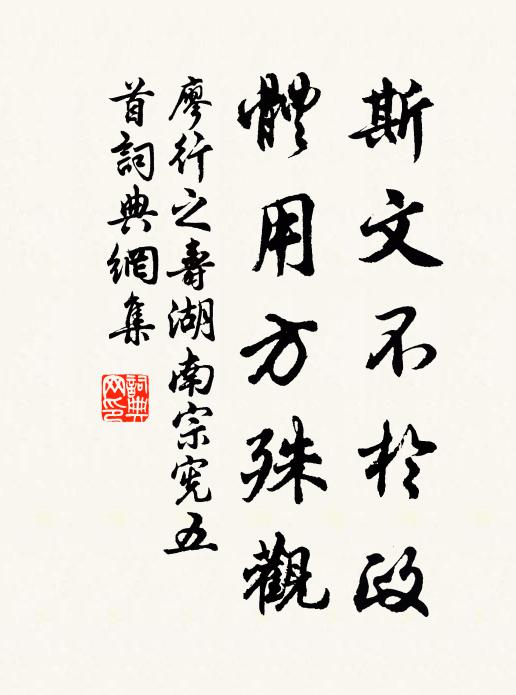 斯文不於政
體用方殊觀
廖行之壽湖南宗憲五
首詞典網集
詞典网印